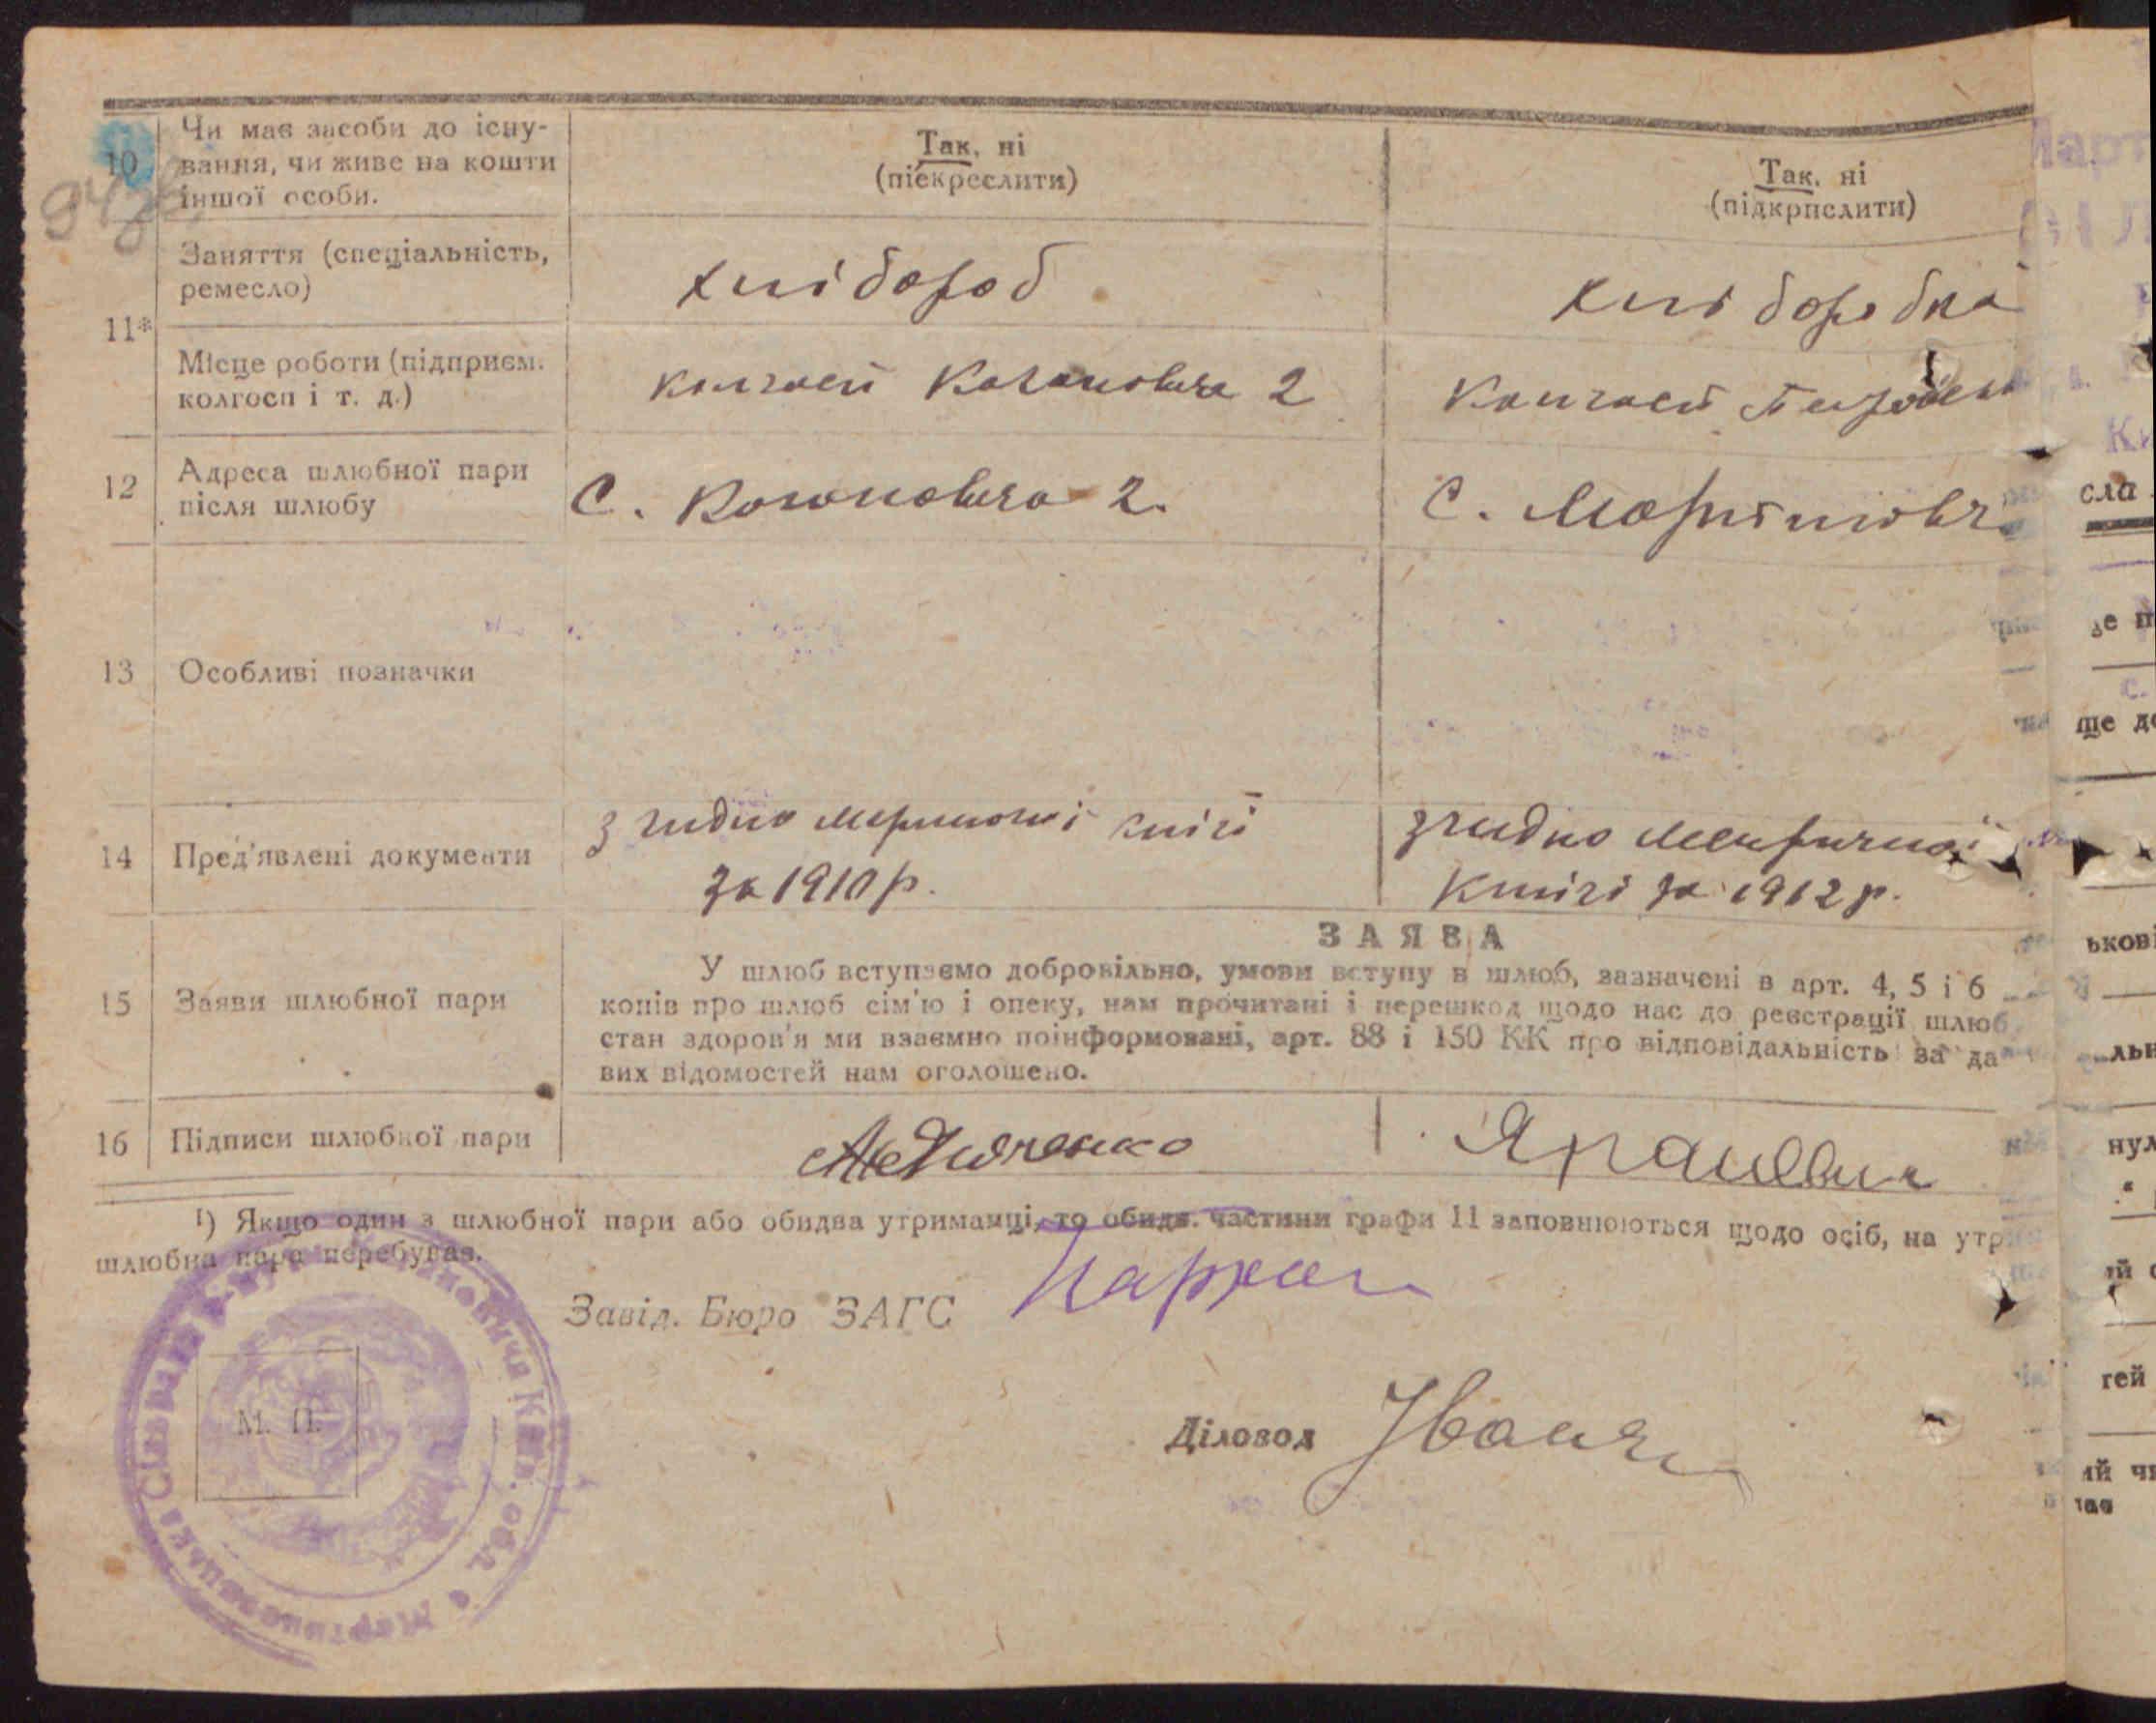 10 Чи має засоби до існу-
вання, чи живе на кошти
іншої особи.
Так, ні
(піекреслити)
Так, ні
(підкрпслити)
11* Заняття (спеціальність,
ремесло)
хлібороб
хлі боробка
Місце роботи (підприєм.
колгосп і т. д.)
колгосп Кагановича 2
Колгосп
12 Адреса шлюбної пари
після шлюбу
С. Кагановича 2.
С. Мартинівк
13 Особливі позначки
14 Пред'явлені документи
згидно метричної книги
за 1910 р.
згидно Метричної
книги за 1912 р.
ЗАЯВА
15 Заяви шлюбної пари
У шлюб вступаємо добровільно, умови вступу в шлюб, зазначені в арт. 4, 5 і 6
копів про шлюб сім'ю і опеку, нам прочитані і перешкод щодо нас до реєстрації шлюб
стан здоров'я ми взаємно поінформовані, арт. 88 і 150 КК про відповідальність за да
вих відомостей нам оголошено.
16 Підписи шлюбної пари
1) Якщо один з шлюбної пари або обидва утриманці, то обидв. частини графи 11 заповнюються щодо осіб, на утр
шлюбна пара перебуває.
Завід. Бюро ЗАГС
М. П.
Діловод